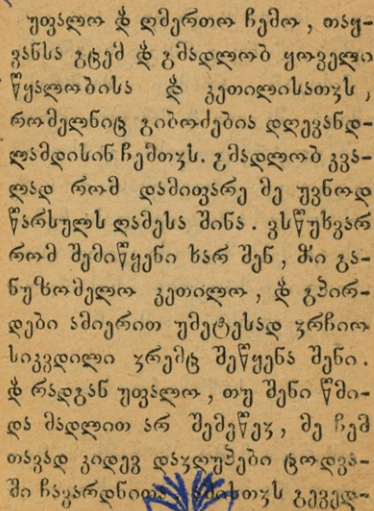 უფალო ჱ ღმერთო ჩემო, თაყ-
ვანსა გცემ ჱ გმადლობ ყოველი
წყალობისა ჱ კეთილისათჳს,
რომელნიც გიბოძებია დღევანდ-
ლამდისინ ჩემთჳს. გმადლობ კვა-
ლად რომ დამიფარე მე უვნოდ
წარსულს ღამესა შინა. ვსწუხვარ
რომ შემიწყენი ხარ შენ,
ნუზომელო კეთილო, ჱ გპირ-
დები ამიერით უმეტესად ჯრჩიო
სიკვდილი ჯრემც შეწყენა შენი.
ჱ რადგან უფალო, თუ შენი წმი-
და მადლით არ შემეწევ, მე ჩემ
თავად კიდევ დავღუპები ცოდვა-
ში ჩავარდნითა ამისთჳს გევედ-